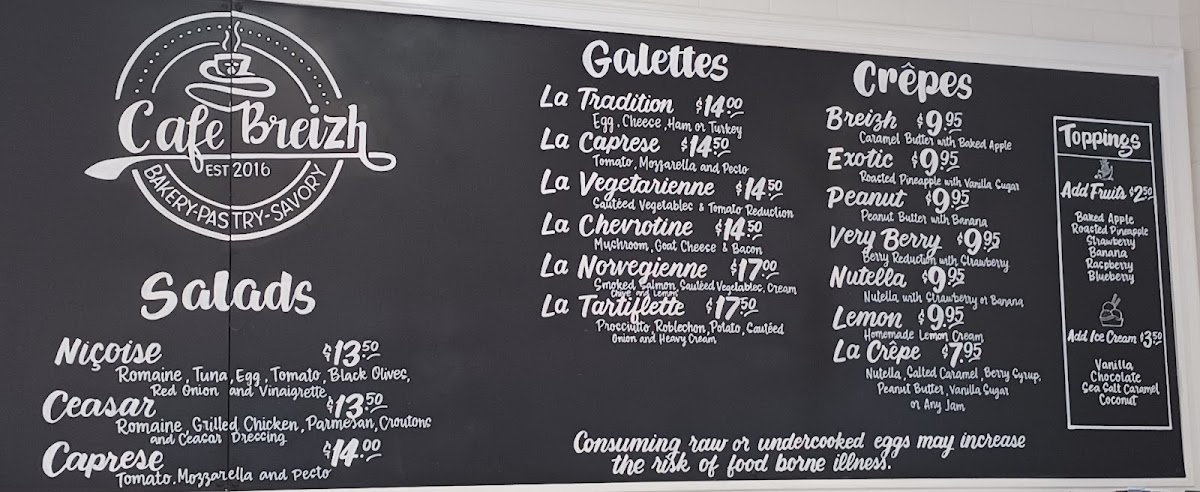 Cafe Breizh
EST 2016
BAKERY-PASTRY-SAVORY
Salads
Niçoise $13.50
Romaine, Tuna, Egg, Tomato, Black Olives,
Red Onion and Vinaigrette
Ceasar $13.50
Romaine, Grilled Chicken, Parmesan, Croutons
and Ceasar Dressing
Caprese $14.00
Tomato, Mozzarella and Pesto
Galettes
La Tradition $14.00
Egg, Cheese, Ham or Turkey
La Caprese $14.50
Tomato, Mozzarella and Pesto
La Vegetarienne $14.50
Sautéed Vegetables & Tomato Reduction
La Chevrotine $14.50
Mushroom, Goat Cheese & Bacon
La Norvegienne $17.00
Smoked Salmon, Sautéed Vegetables, Cream
Chive and Lemon
La Tartiflette $17.50
Prosciutto, Roblechon, Potato, Sautéed
Onion and Heavy Cream
Crêpes
Breizh $9.95
Caramel Butter with Baked Apple
Exotic $9.95
Roasted Pineapple with Vanilla Sugar
Peanut $9.95
Peanut Butter with Banana
Very Berry $9.95
Berry Reduction with Strawberry
Nutella $9.95
Nutella with Strawberry or Banana
Lemon $9.95
Homemade Lemon Cream
La Crêpe $7.95
Nutella, Salted Caramel, Berry Syrup,
Peanut Butter, Vanilla Sugar
or Any Jam
Toppings
Add Fruits $2.50
Baked Apple
Roasted Pineapple
Strawberry
Banana
Raspberry
Blueberry
Add Ice Cream $3.50
Vanilla
Chocolate
Sea Salt Caramel
Coconut
Consuming raw or undercooked eggs may increase
the risk of food borne illness.